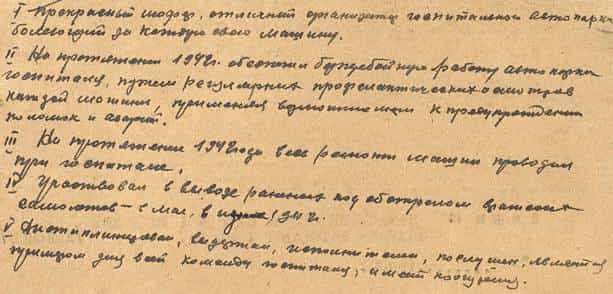 I Прекрасный шофер, отличный организатор госпитального автопарка
болеющий за каждую свою машину.
II На протяжении 1942г. обеспечил бесперебойную работу автомашин
госпиталя, путем регулярных профилактических осмотров
каждой машины, применяя все к предупреждению
поломок и аварий.
III На протяжении 1942 года все ремонты машин проводил
при госпитале.
IV Участвовал в вывозе раненых под обстрелом вражеских
самолетов - в мае, в 194 г.
V Дисциплинирован, выдержан, исполнителен, послушен, является
примером для всей команды госпиталя, имеет поощрения.